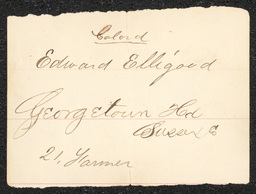 Colord
Edward Elligood
Georgetown Hd
Sussex C
21, Farmer